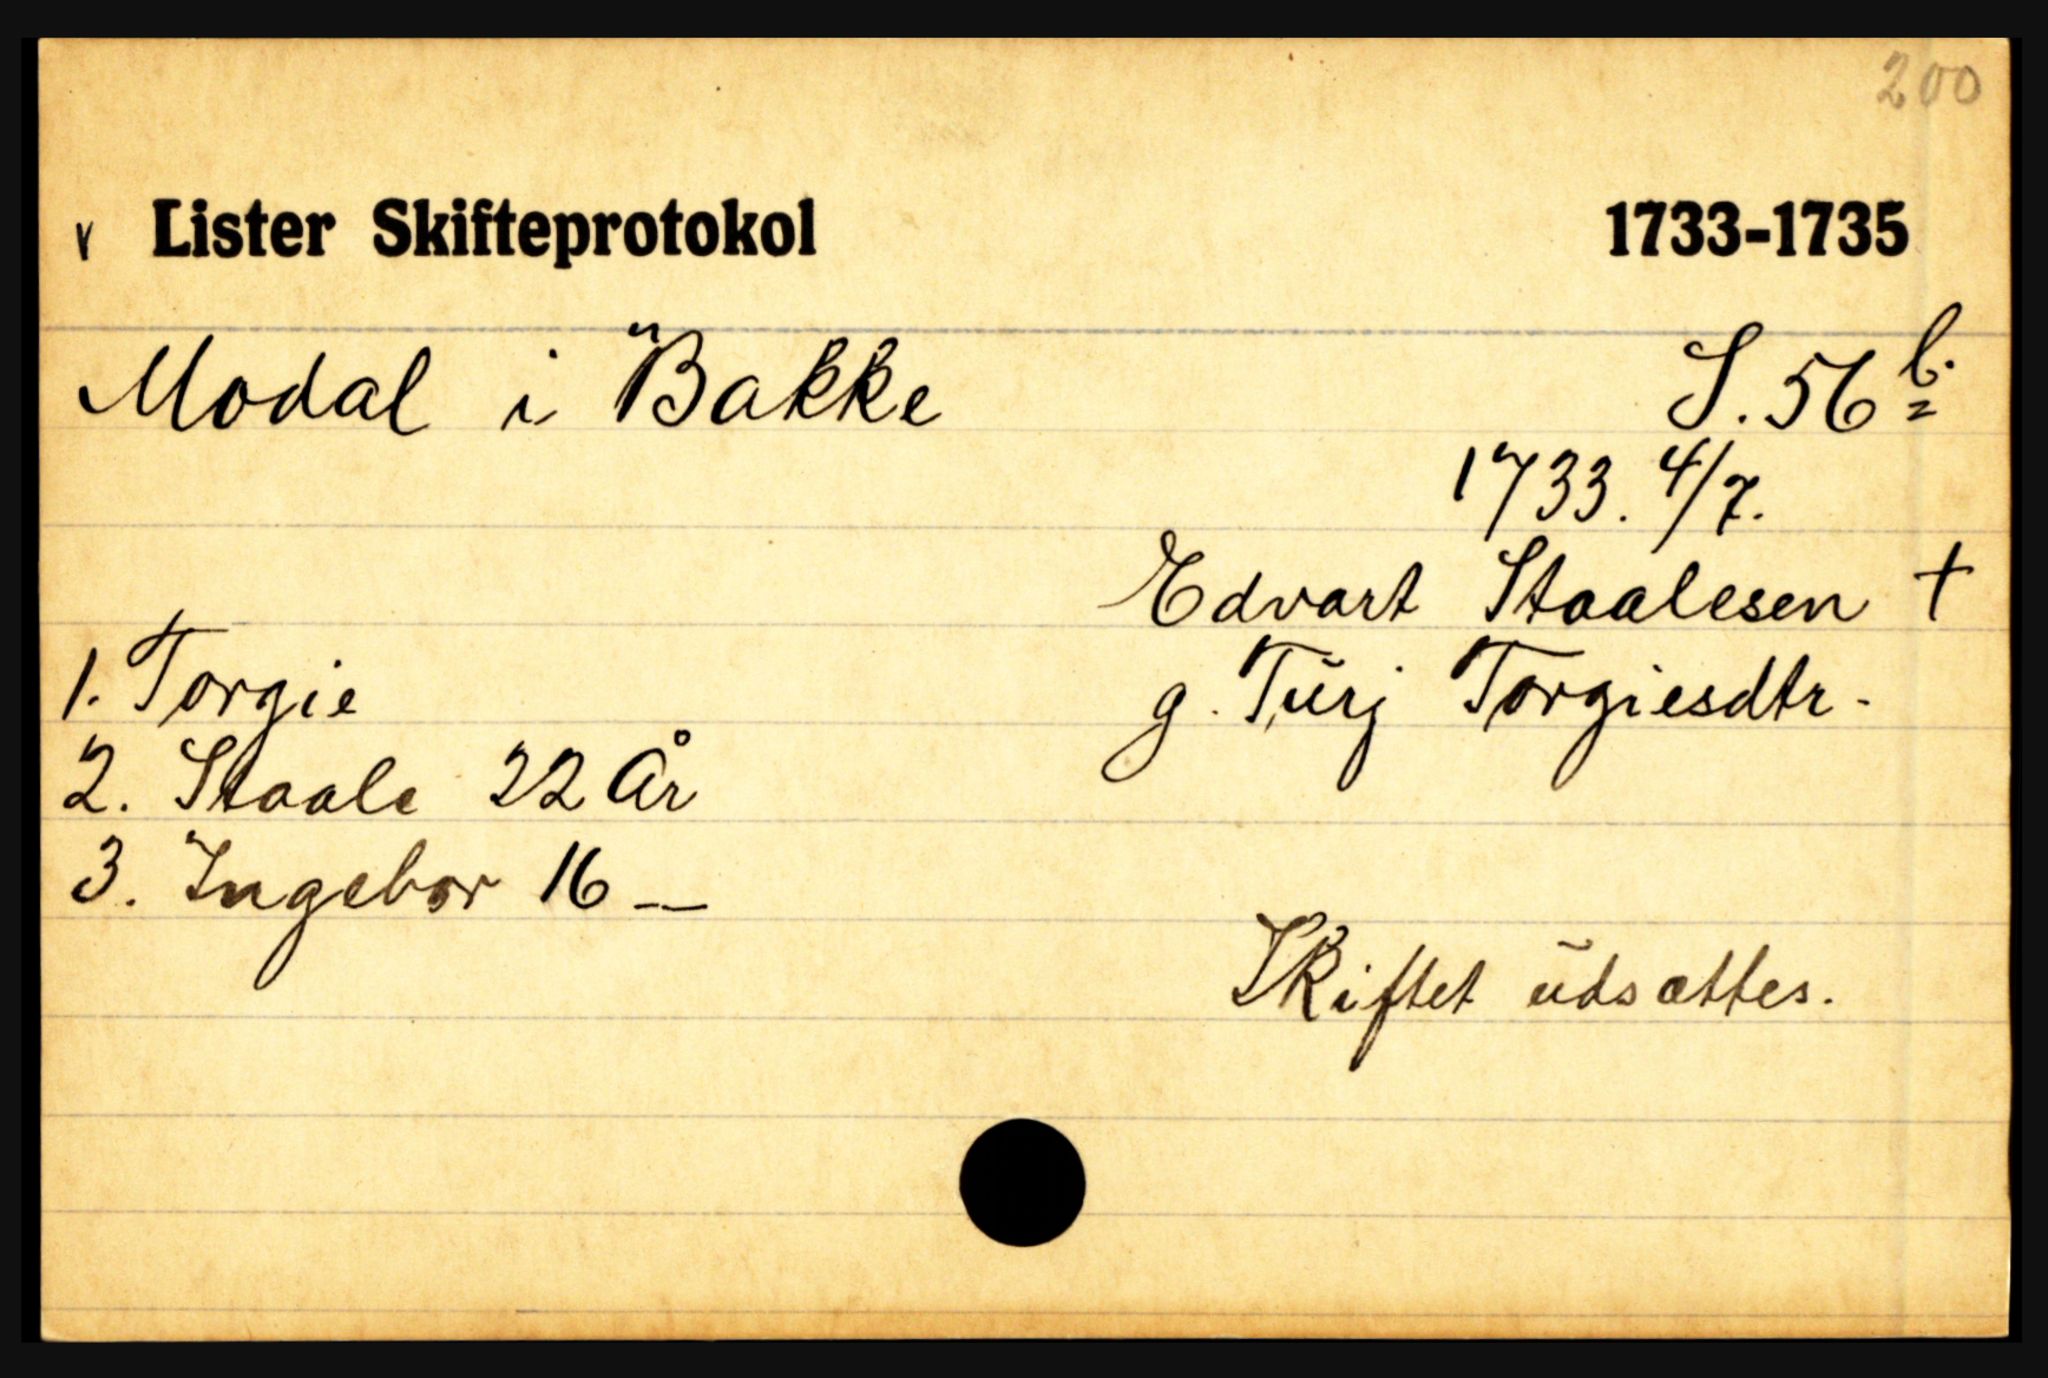 200
v Lister Skifteprotokol 1733-1735
Modal i Bakke S. 56 b.
1733. 4/7.
Edvart Staalesen †
1. Torgie g. Turj Torgiesdtr.
2. Staale 22 År
3. Ingebor 16 —
Skiftet udsættes.